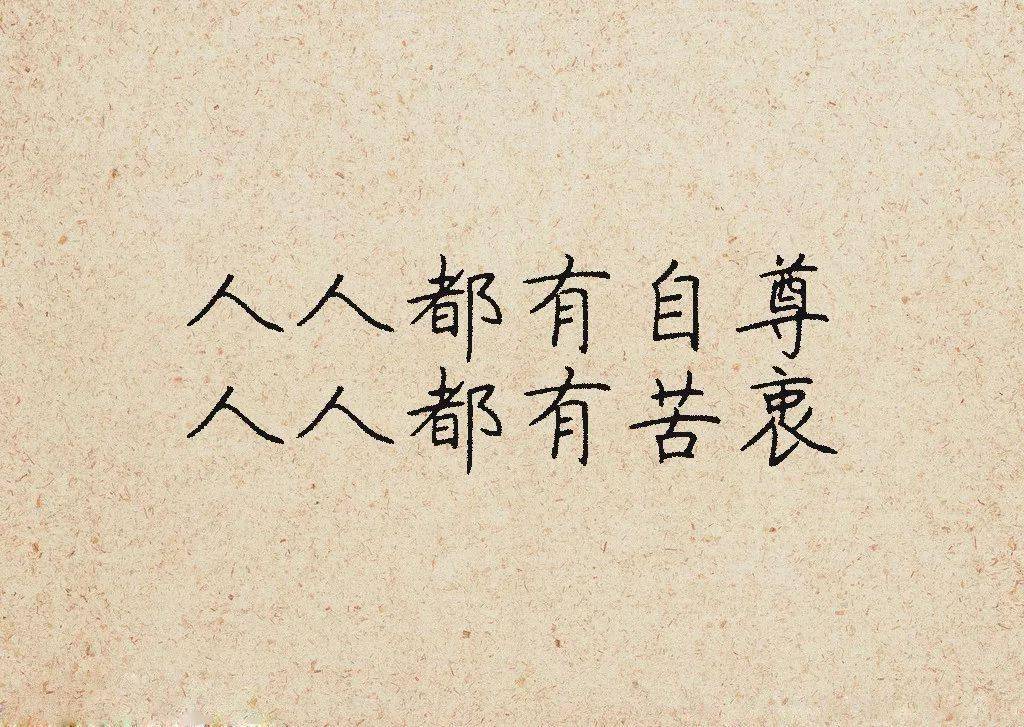 人人都有自尊
人人都有苦衷